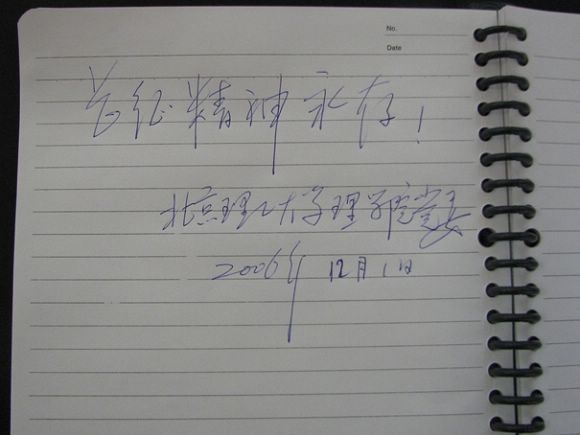 No.
Date
长征精神永存！
北京理工大学理学院党委
2006年 12月1日